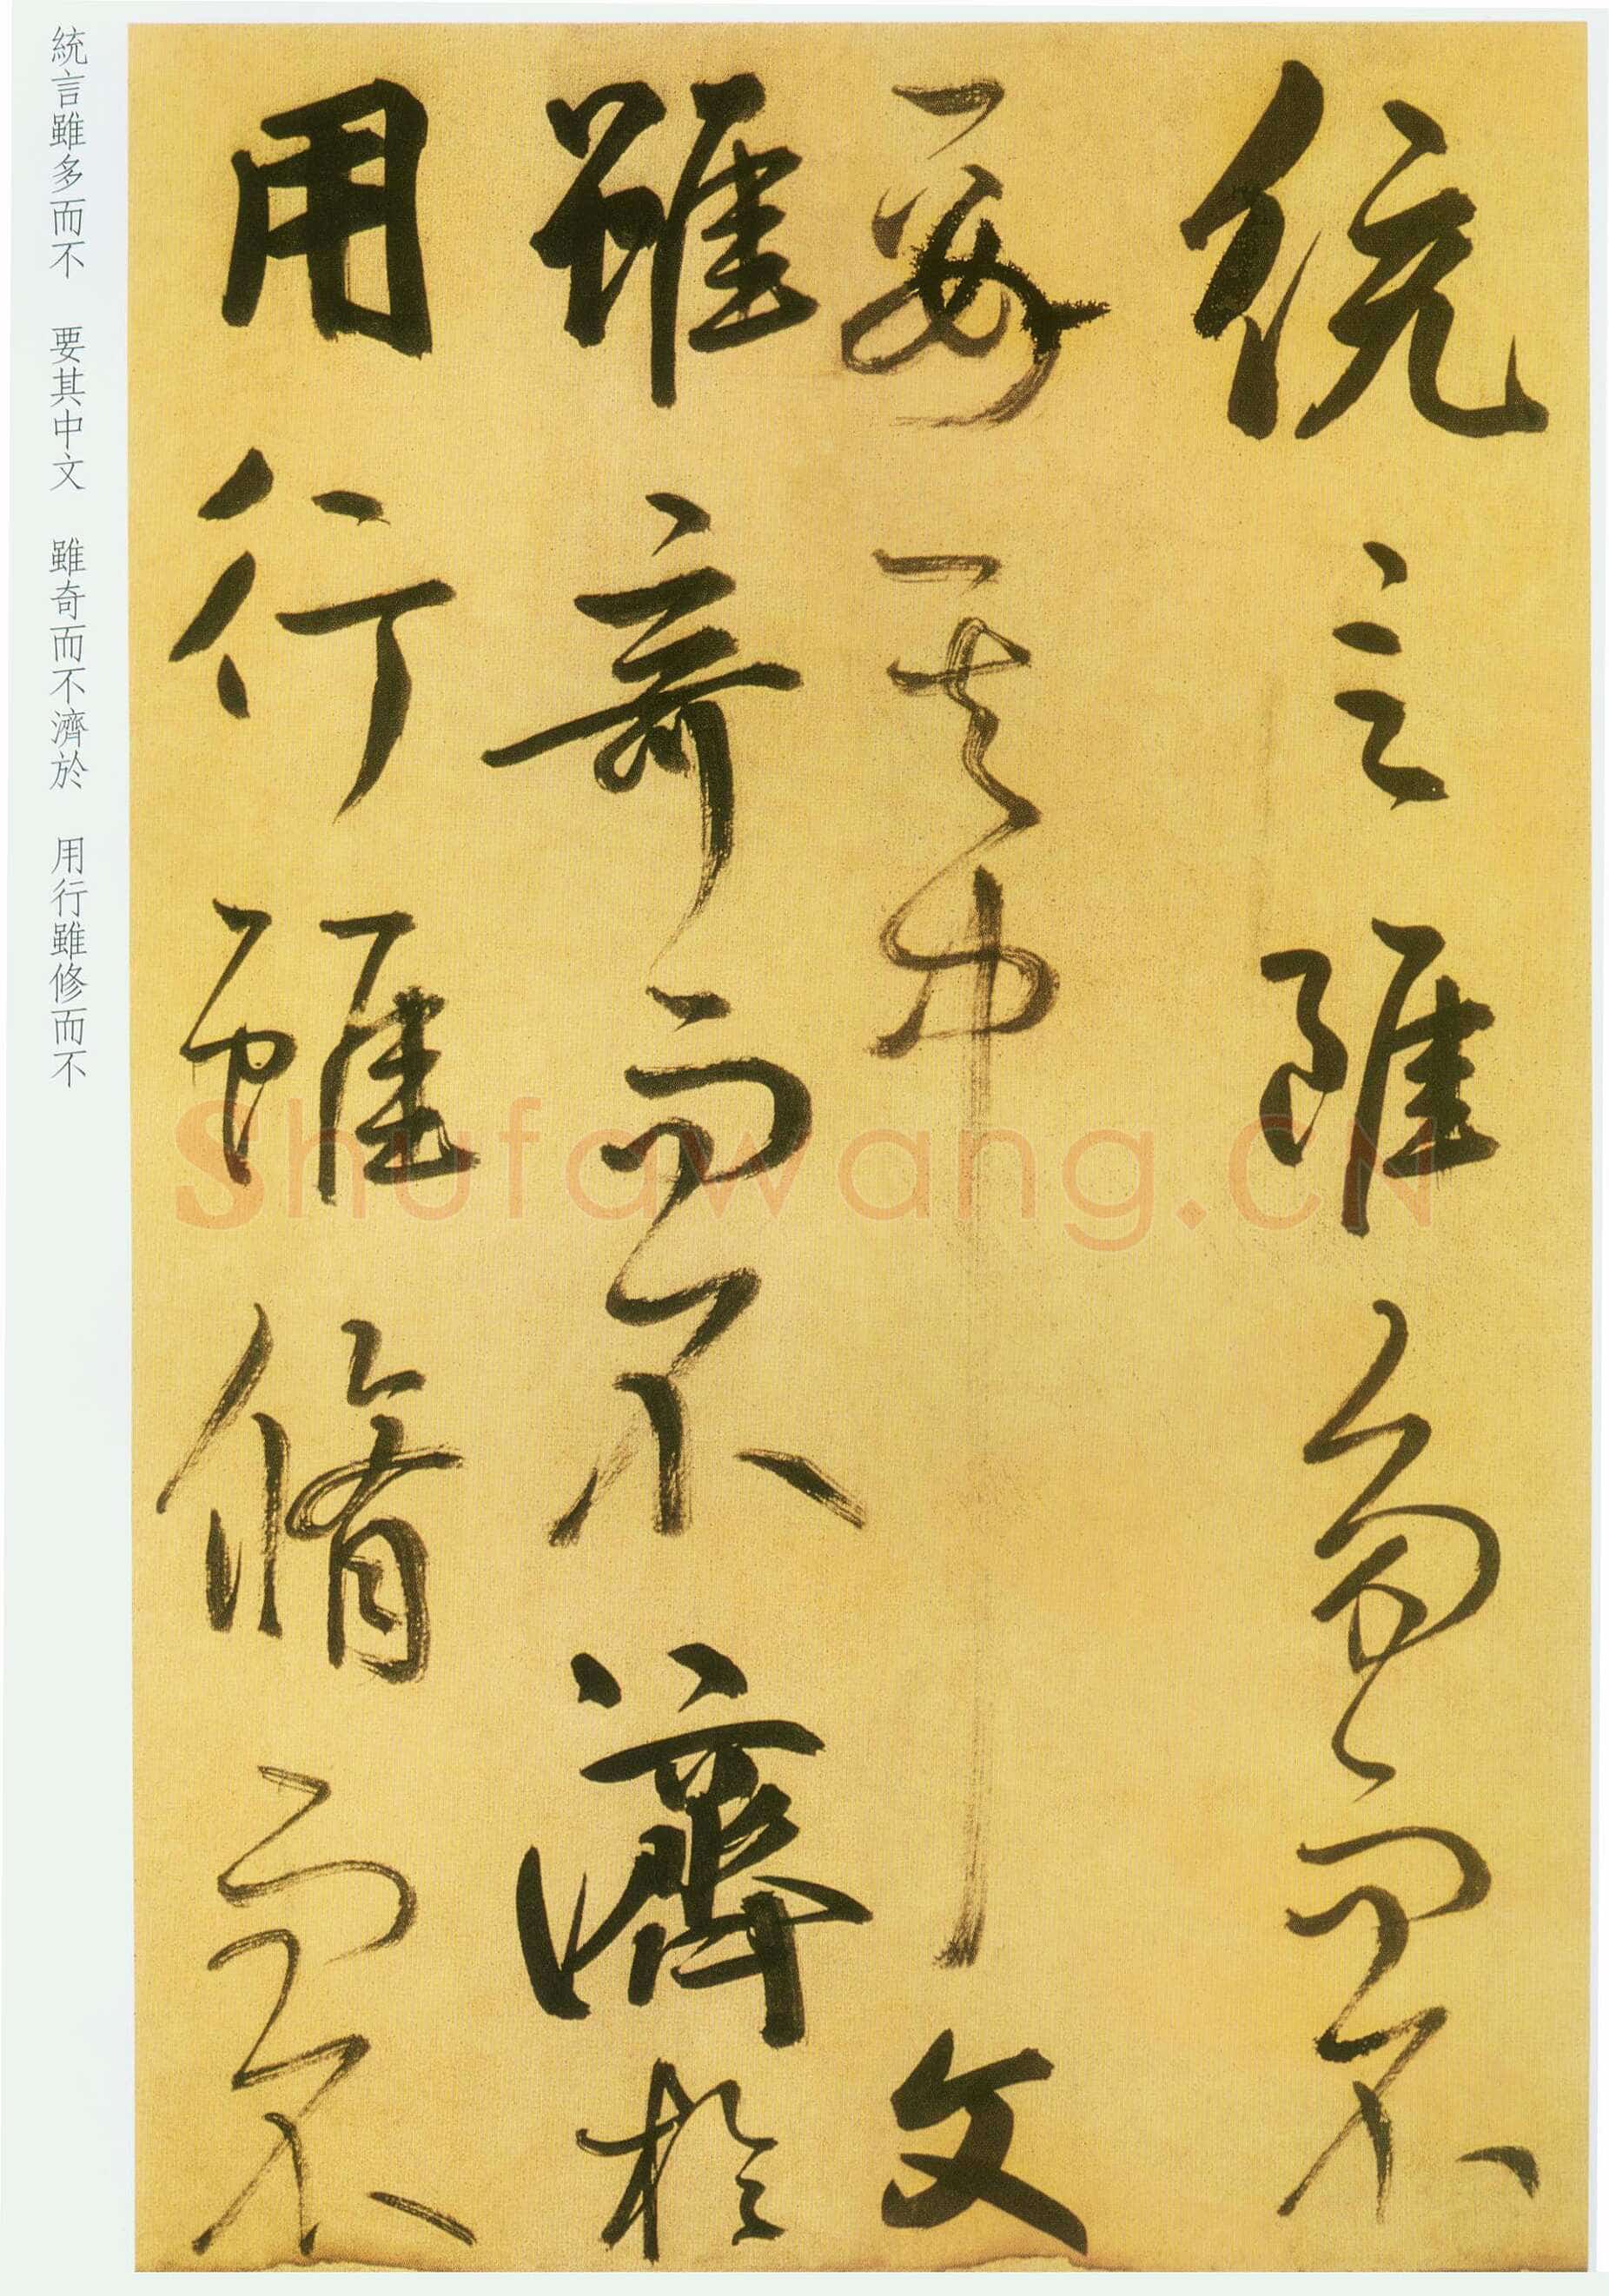 統言雖多而不
要其中文
雖奇而不濟於
用行雖脩而不
統言雖多而不 要其中文 雖奇而不濟於 用行雖修而不
Shufawang.CN